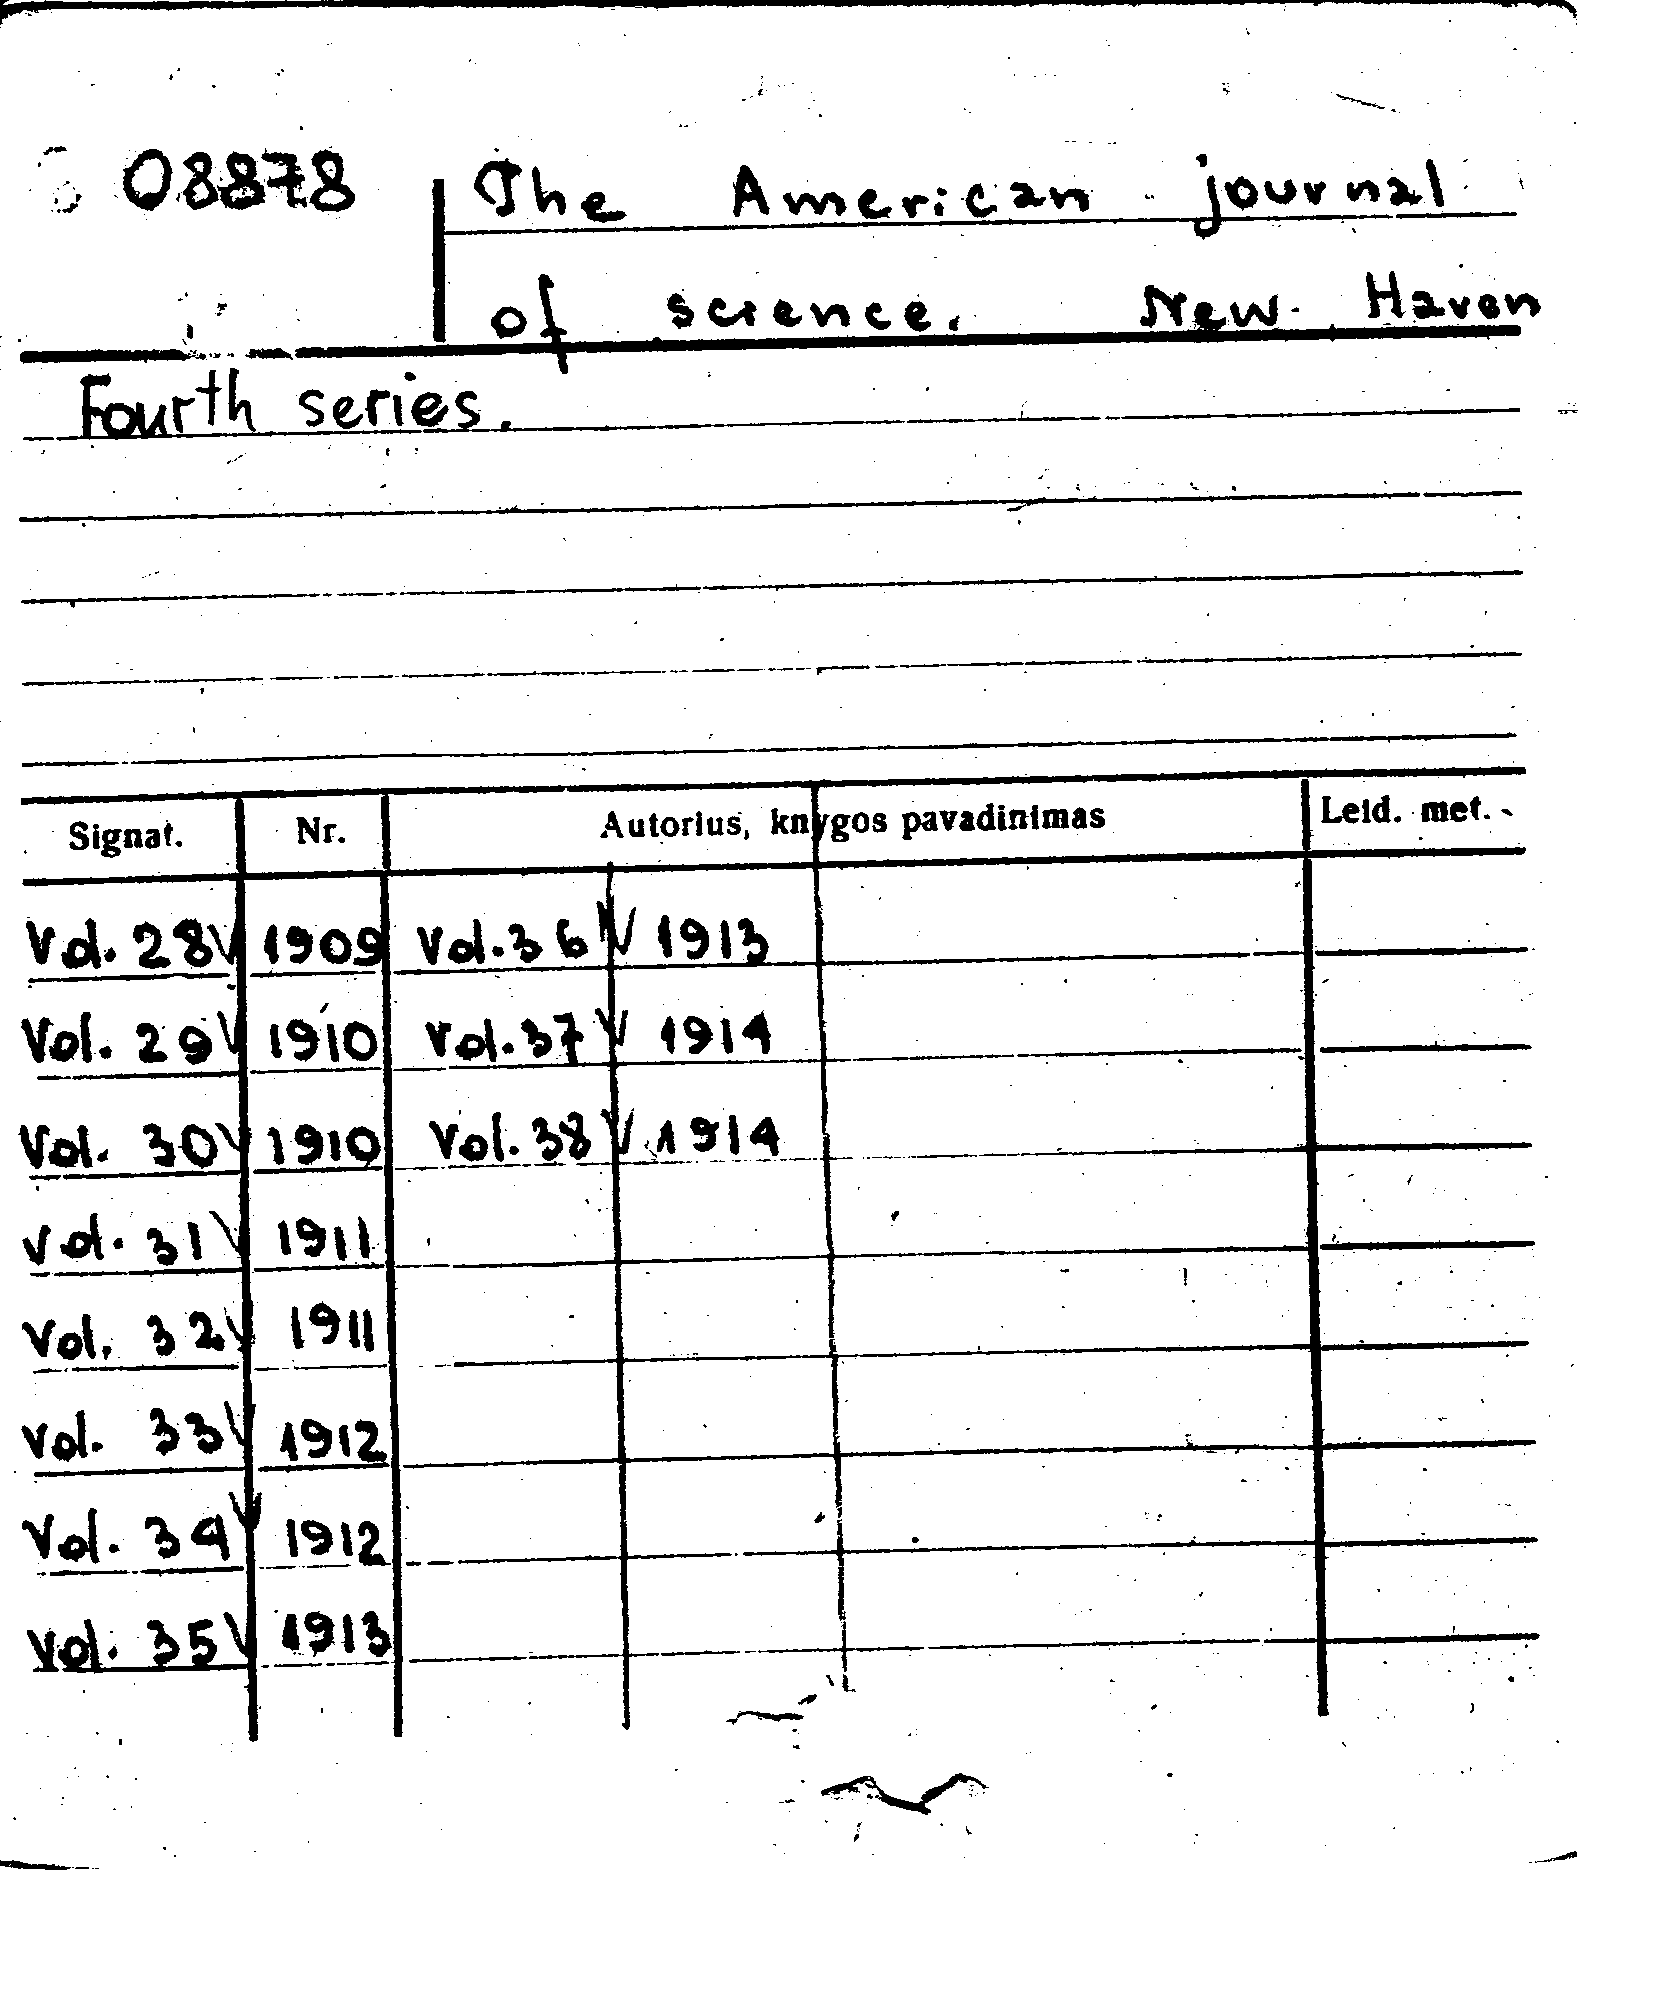 08878 The American journal
of science. New Haven
Fourth series.
Signat. Nr. Autorius, knygos pavadinimas Leid. met.
Vol. 28 V 1909 Vol. 36 V 1913
Vol. 29 V 1910 Vol. 37 V 1914
Vol. 30 V 1910 Vol. 38 V 1914
Vol. 31 V 1911
Vol. 32 V 1911
Vol. 33 V 1912
Vol. 34 V 1912
Vol. 35 V 1913